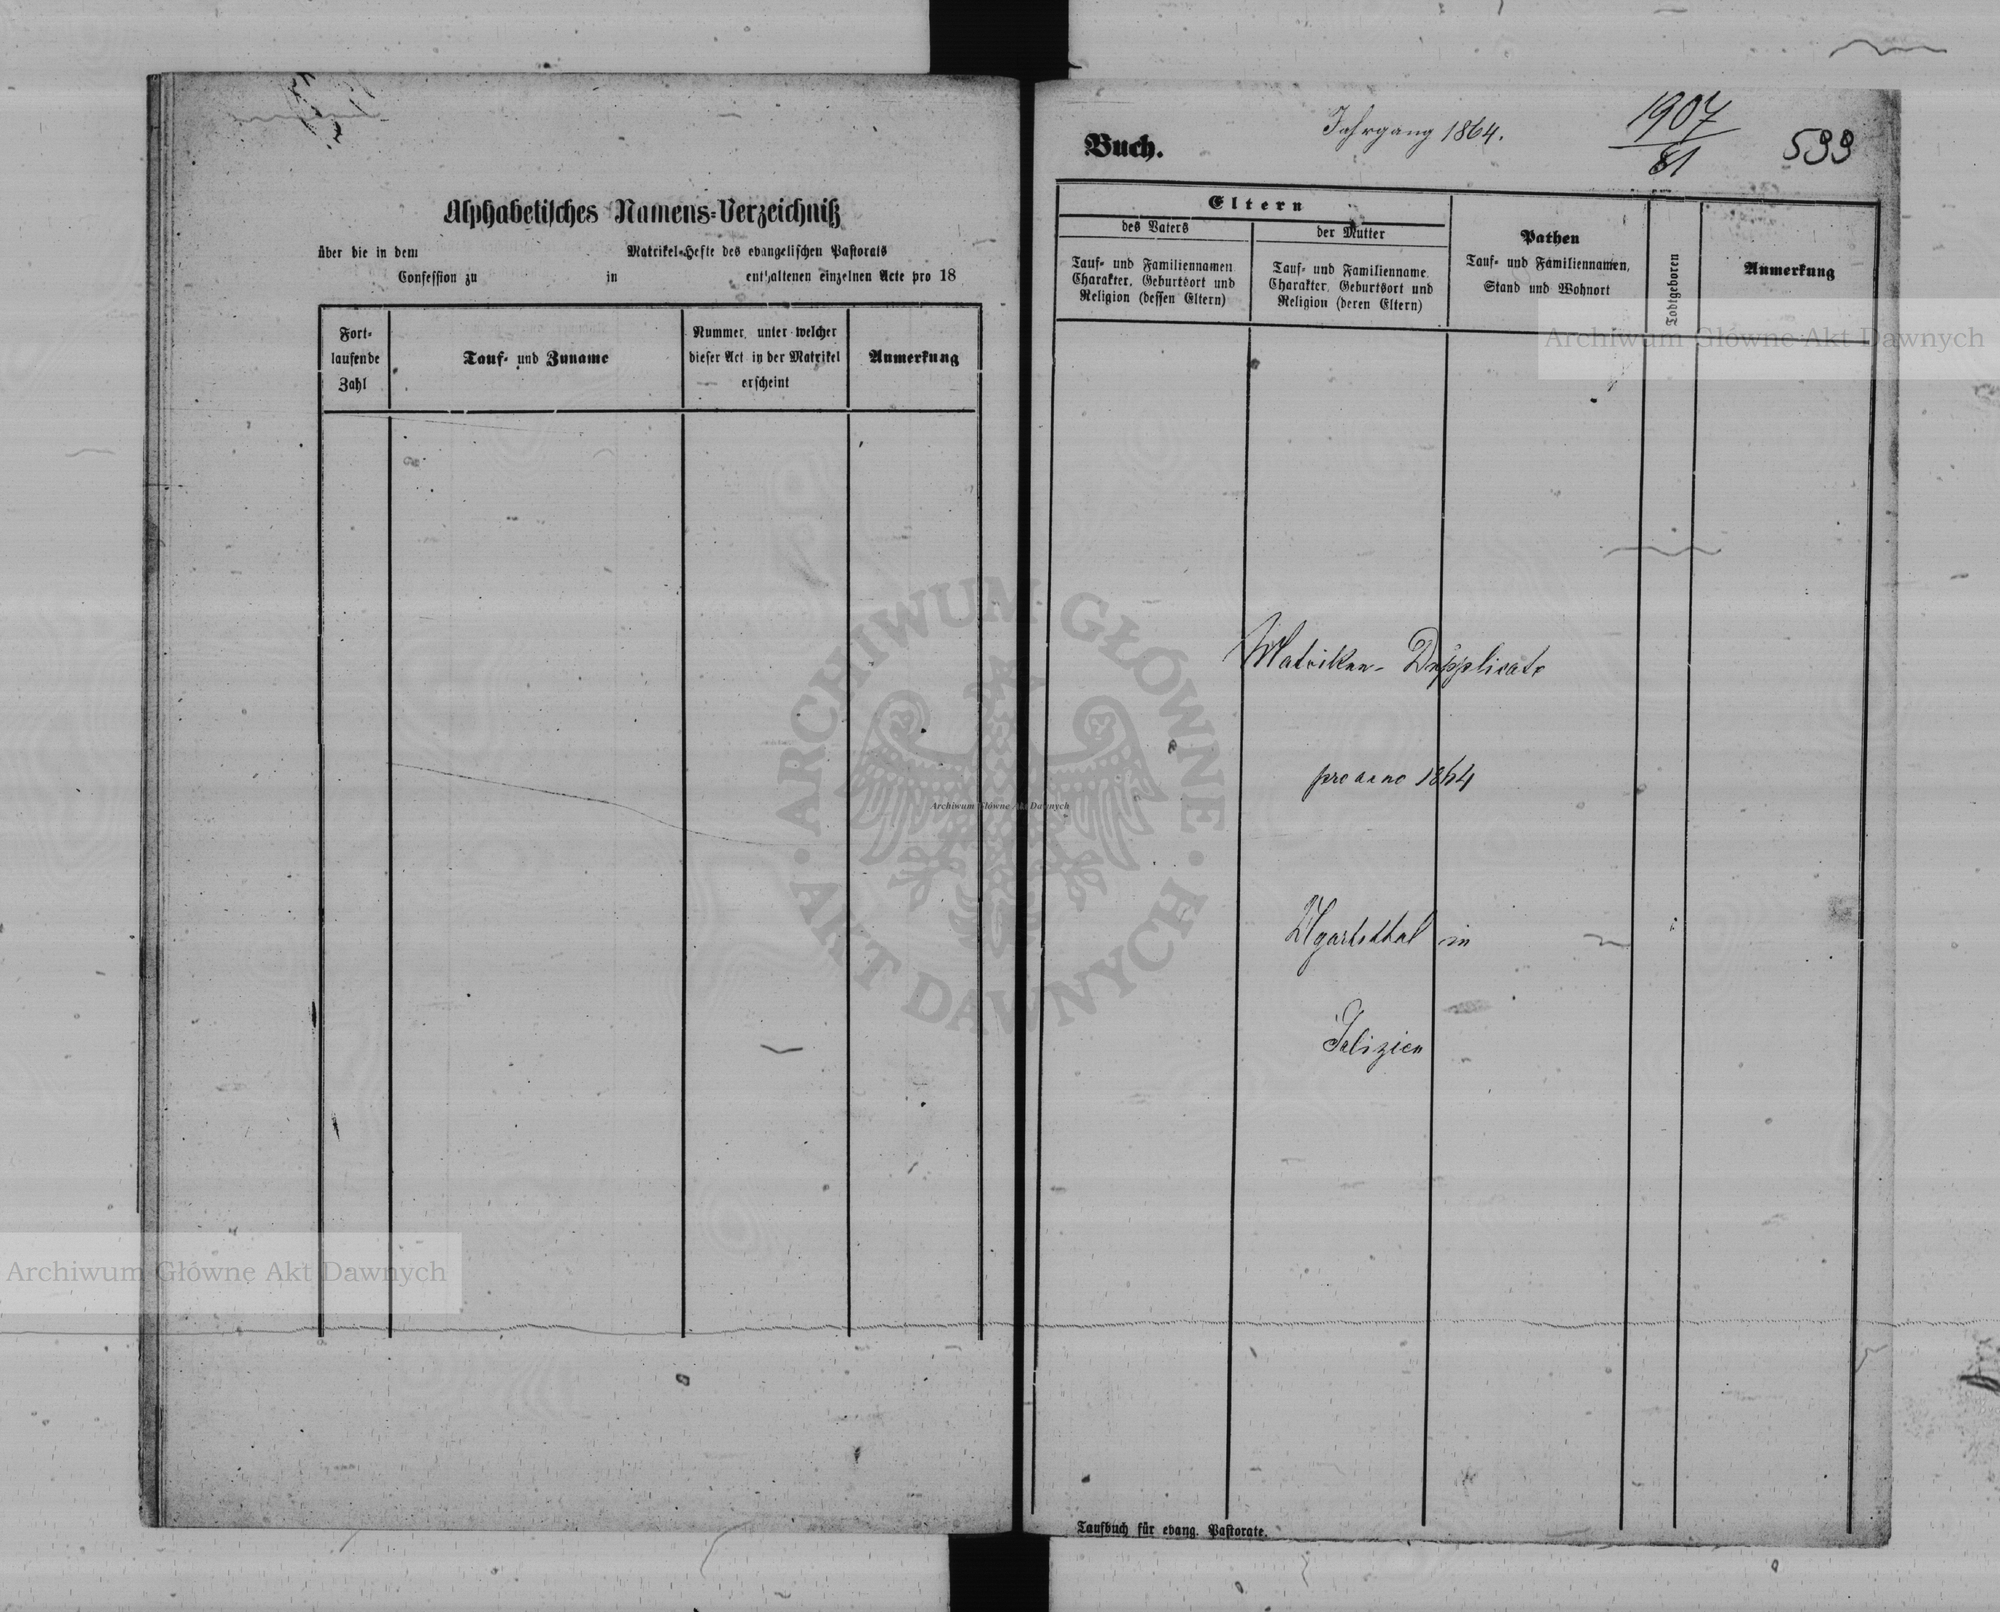 Alphabetisches Namens-Verzeichniß
über die in dem Matrikel-Hefte des evangelischen Pastorats
Confession zu in enthaltenen einzelnen Acte pro 18
Fort-
laufende
Zahl
Tauf- und Zuname
Nummer, unter welcher
dieser Act in der Matrikel
erscheint
Anmerkung
Buch.
Jahrgang 1864.
1907
81
599
Eltern
des Vaters
Tauf- und Familiennamen
Charakter, Geburtsort und
Religion (dessen Eltern)
der Mutter
Tauf- und Familienname
Charakter, Geburtsort und
Religion (deren Eltern)
Pathen
Tauf- und Familiennamen,
Stand und Wohnort
Todtgeboren
Anmerkung
Matriken-Dupplicate
pro anno 1864
Ugartsthal in
Galizien
Taufbuch für evang. Pastorate.
Archiwum Główne Akt Dawnych
ARCHIWUM GŁÓWNE
AKT DAWNYCH
Archiwum Główne Akt Dawnych
Archiwum Główne Akt Dawnych